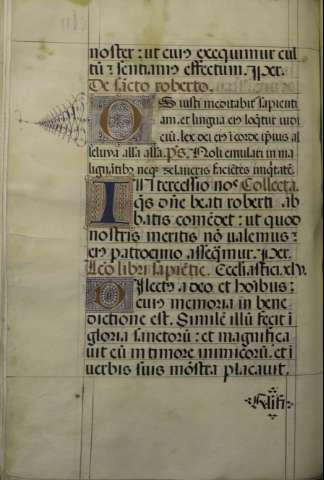 noster: ut eius exequimur cul
tū ⁊ sentiamꝰ effectum. Per.
De sācto roberto.
Os iusti meditabit᷑ sapienti
am. et lingua eiꝰ loq̄tur iudi
ciū. lex dei eiꝰ ī corde ip̄ius al
leluya alla alla. p̄s. Noli emulari in ma
lignātibꝰ neqꝫ zelaueris faciētes iniq̄tatē.
Intercessio nos Collecta.
q̄s dn̄e beati roberti ab
batis cōmēdet: ut quod
nostris meritis nō ualemus:
eiꝰ patrocinio asseq̄mur. Per.
Lēo libri sapiētie. Ecclesiastici xlv.
Dilectꝰ a deo et hoībus:
cuiꝰ memoria in bene
dictione est. Similē illū fecit ī
gloria sanctorū: et magnifica
uit eū in timore inimicorū. et ī
verbis suis mōstra placauit.